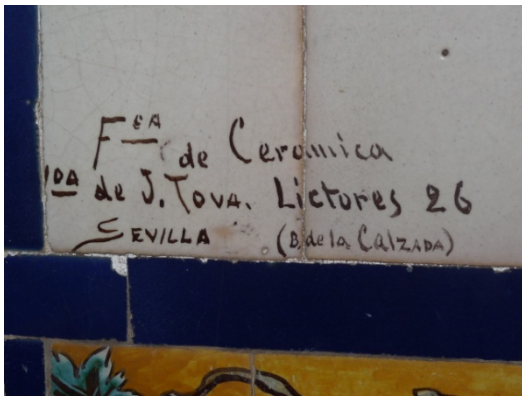 Fca de Ceramica
de J. Tova. Lictores 26
SEVILLA (B. de la CalZADA)